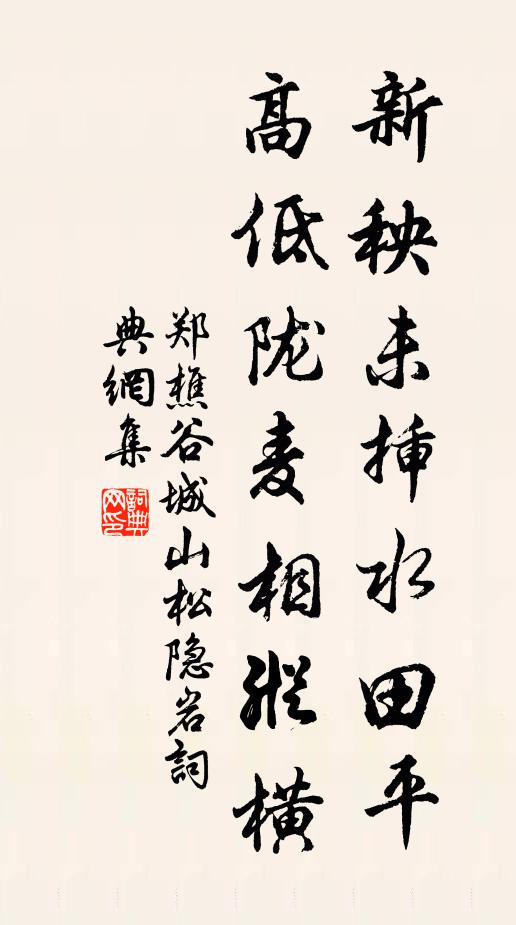 新秧未插水田平
高低陇麦相纵横
郑樵谷城山松隐岩詞
典網集
詞典网印